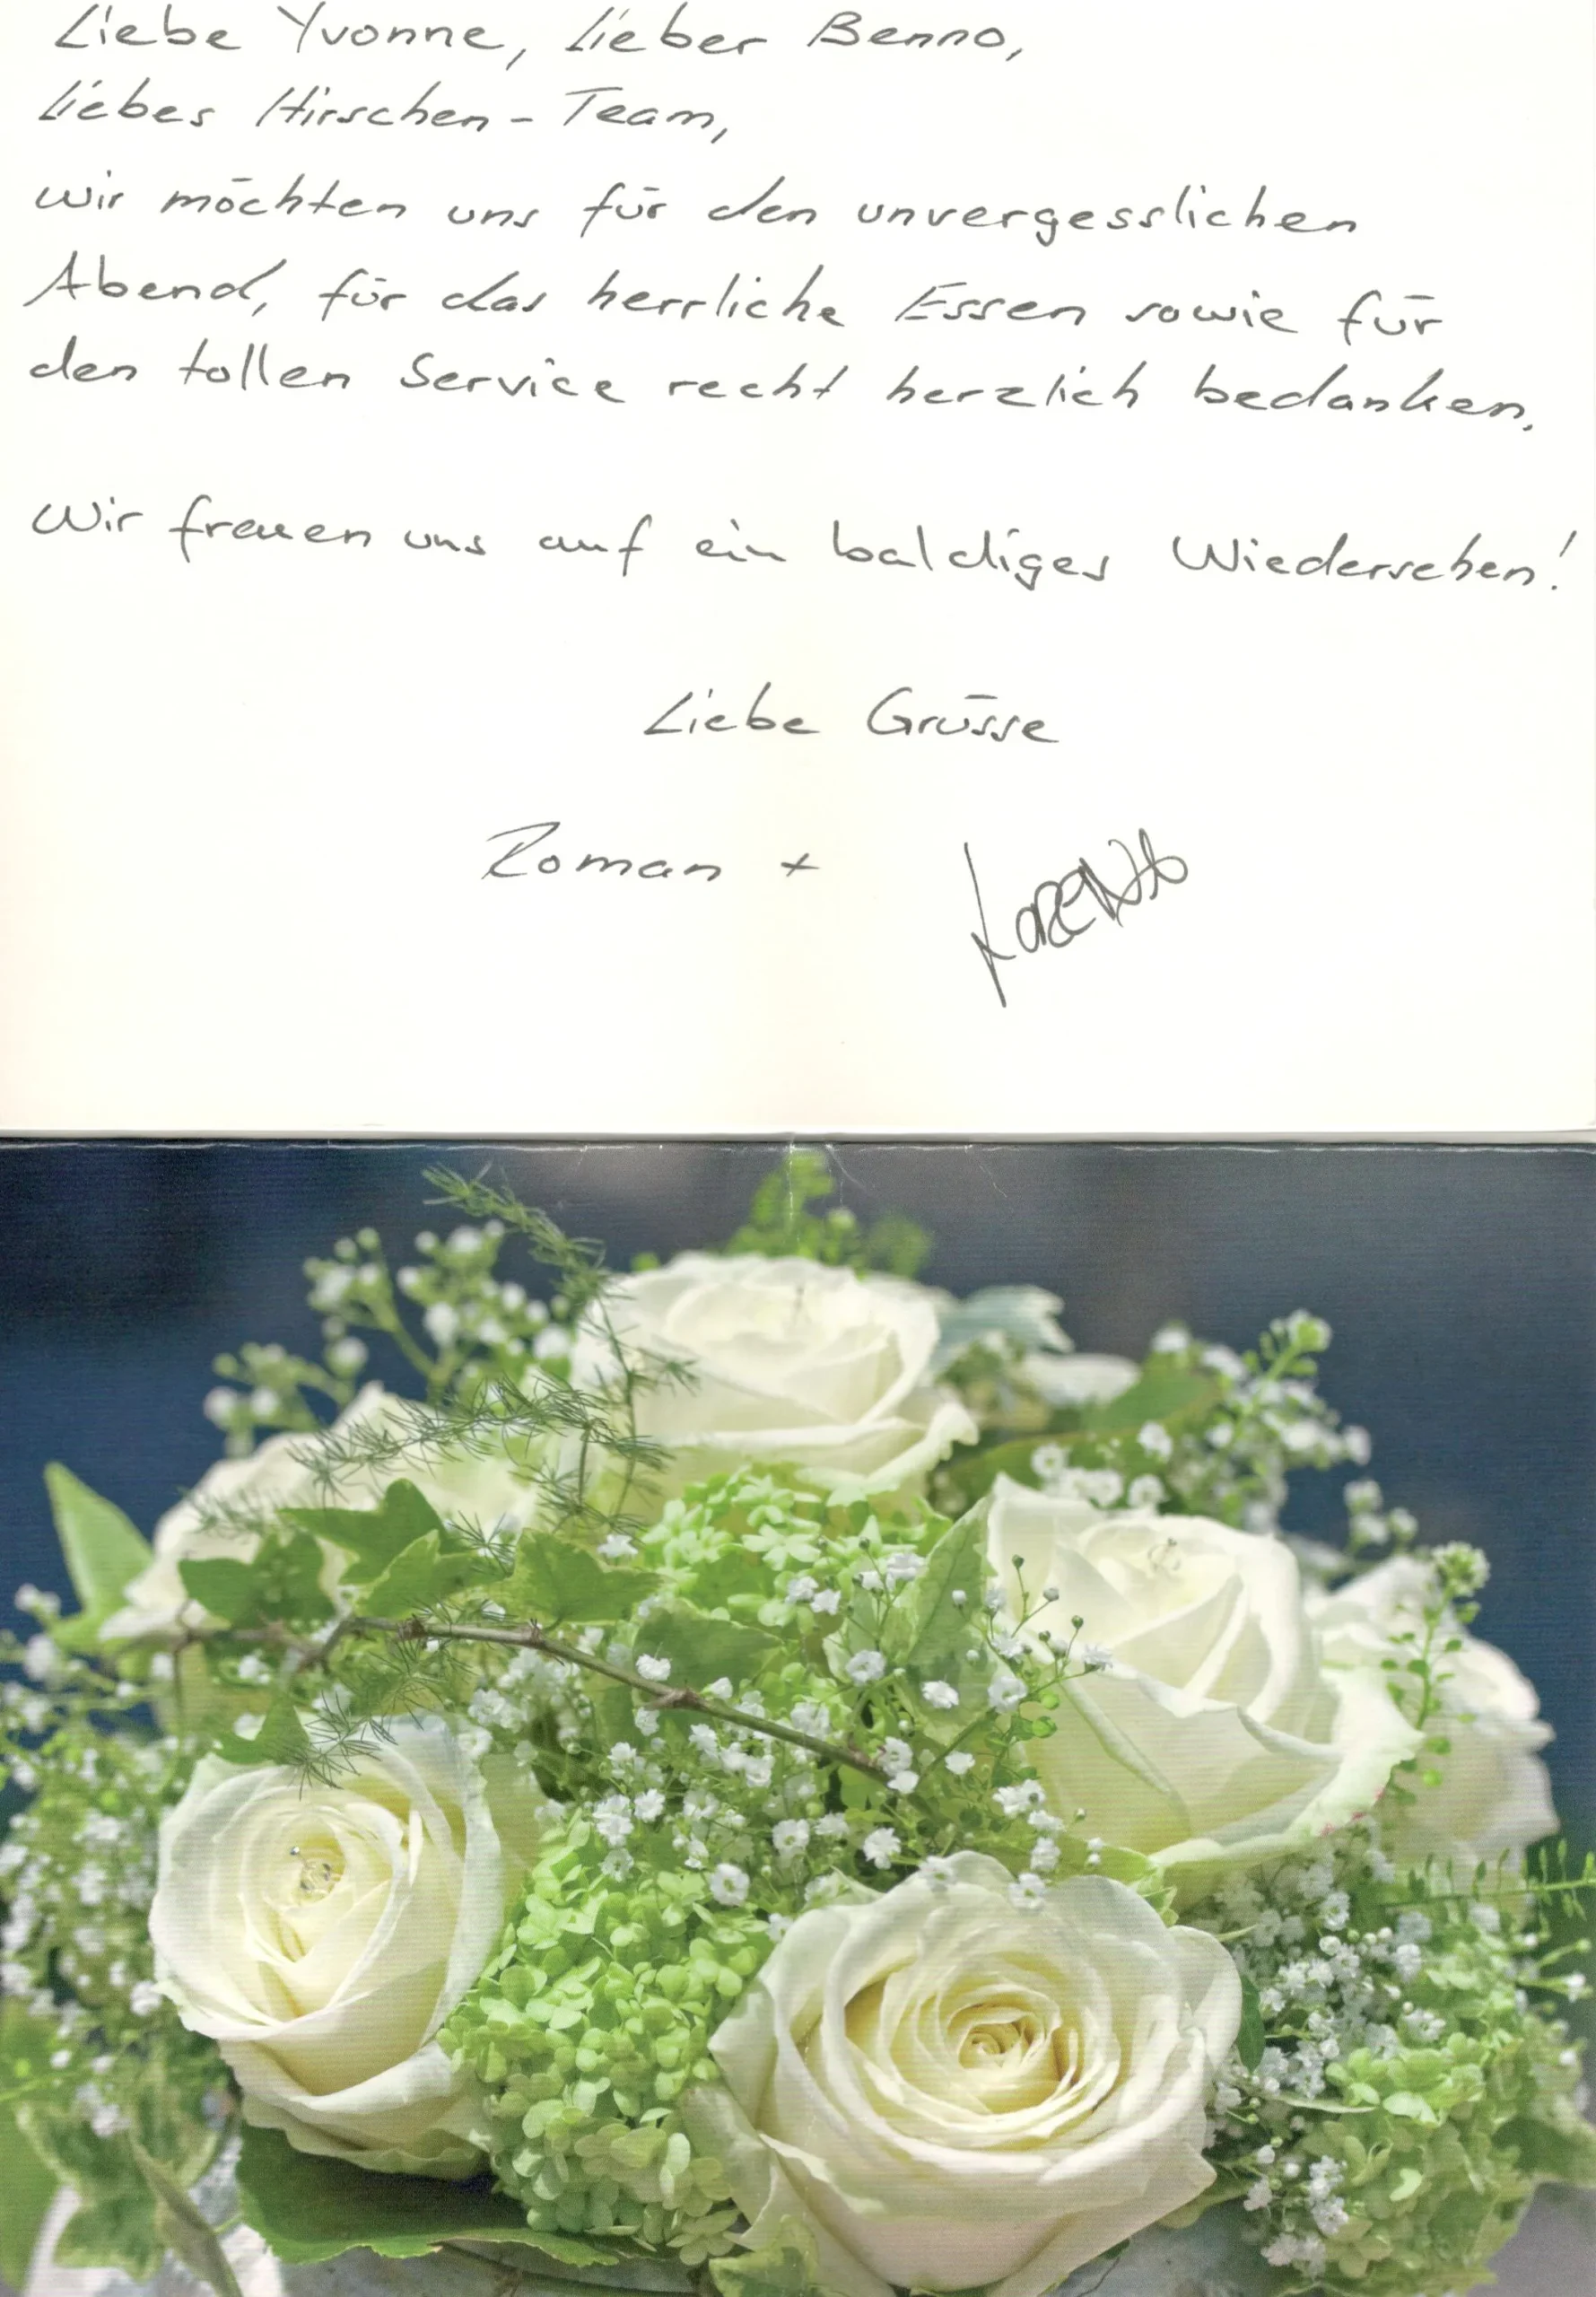 Liebe Yvonne, lieber Benno,
liebes Hirschen-Team,
wir möchten uns für den unvergesslichen
Abend, für das herrliche Essen sowie für
den tollen Service recht herzlich bedanken.
Wir freuen uns auf ein baldiges Wiedersehen!
Liebe Grüsse
Roman + Lorenzo